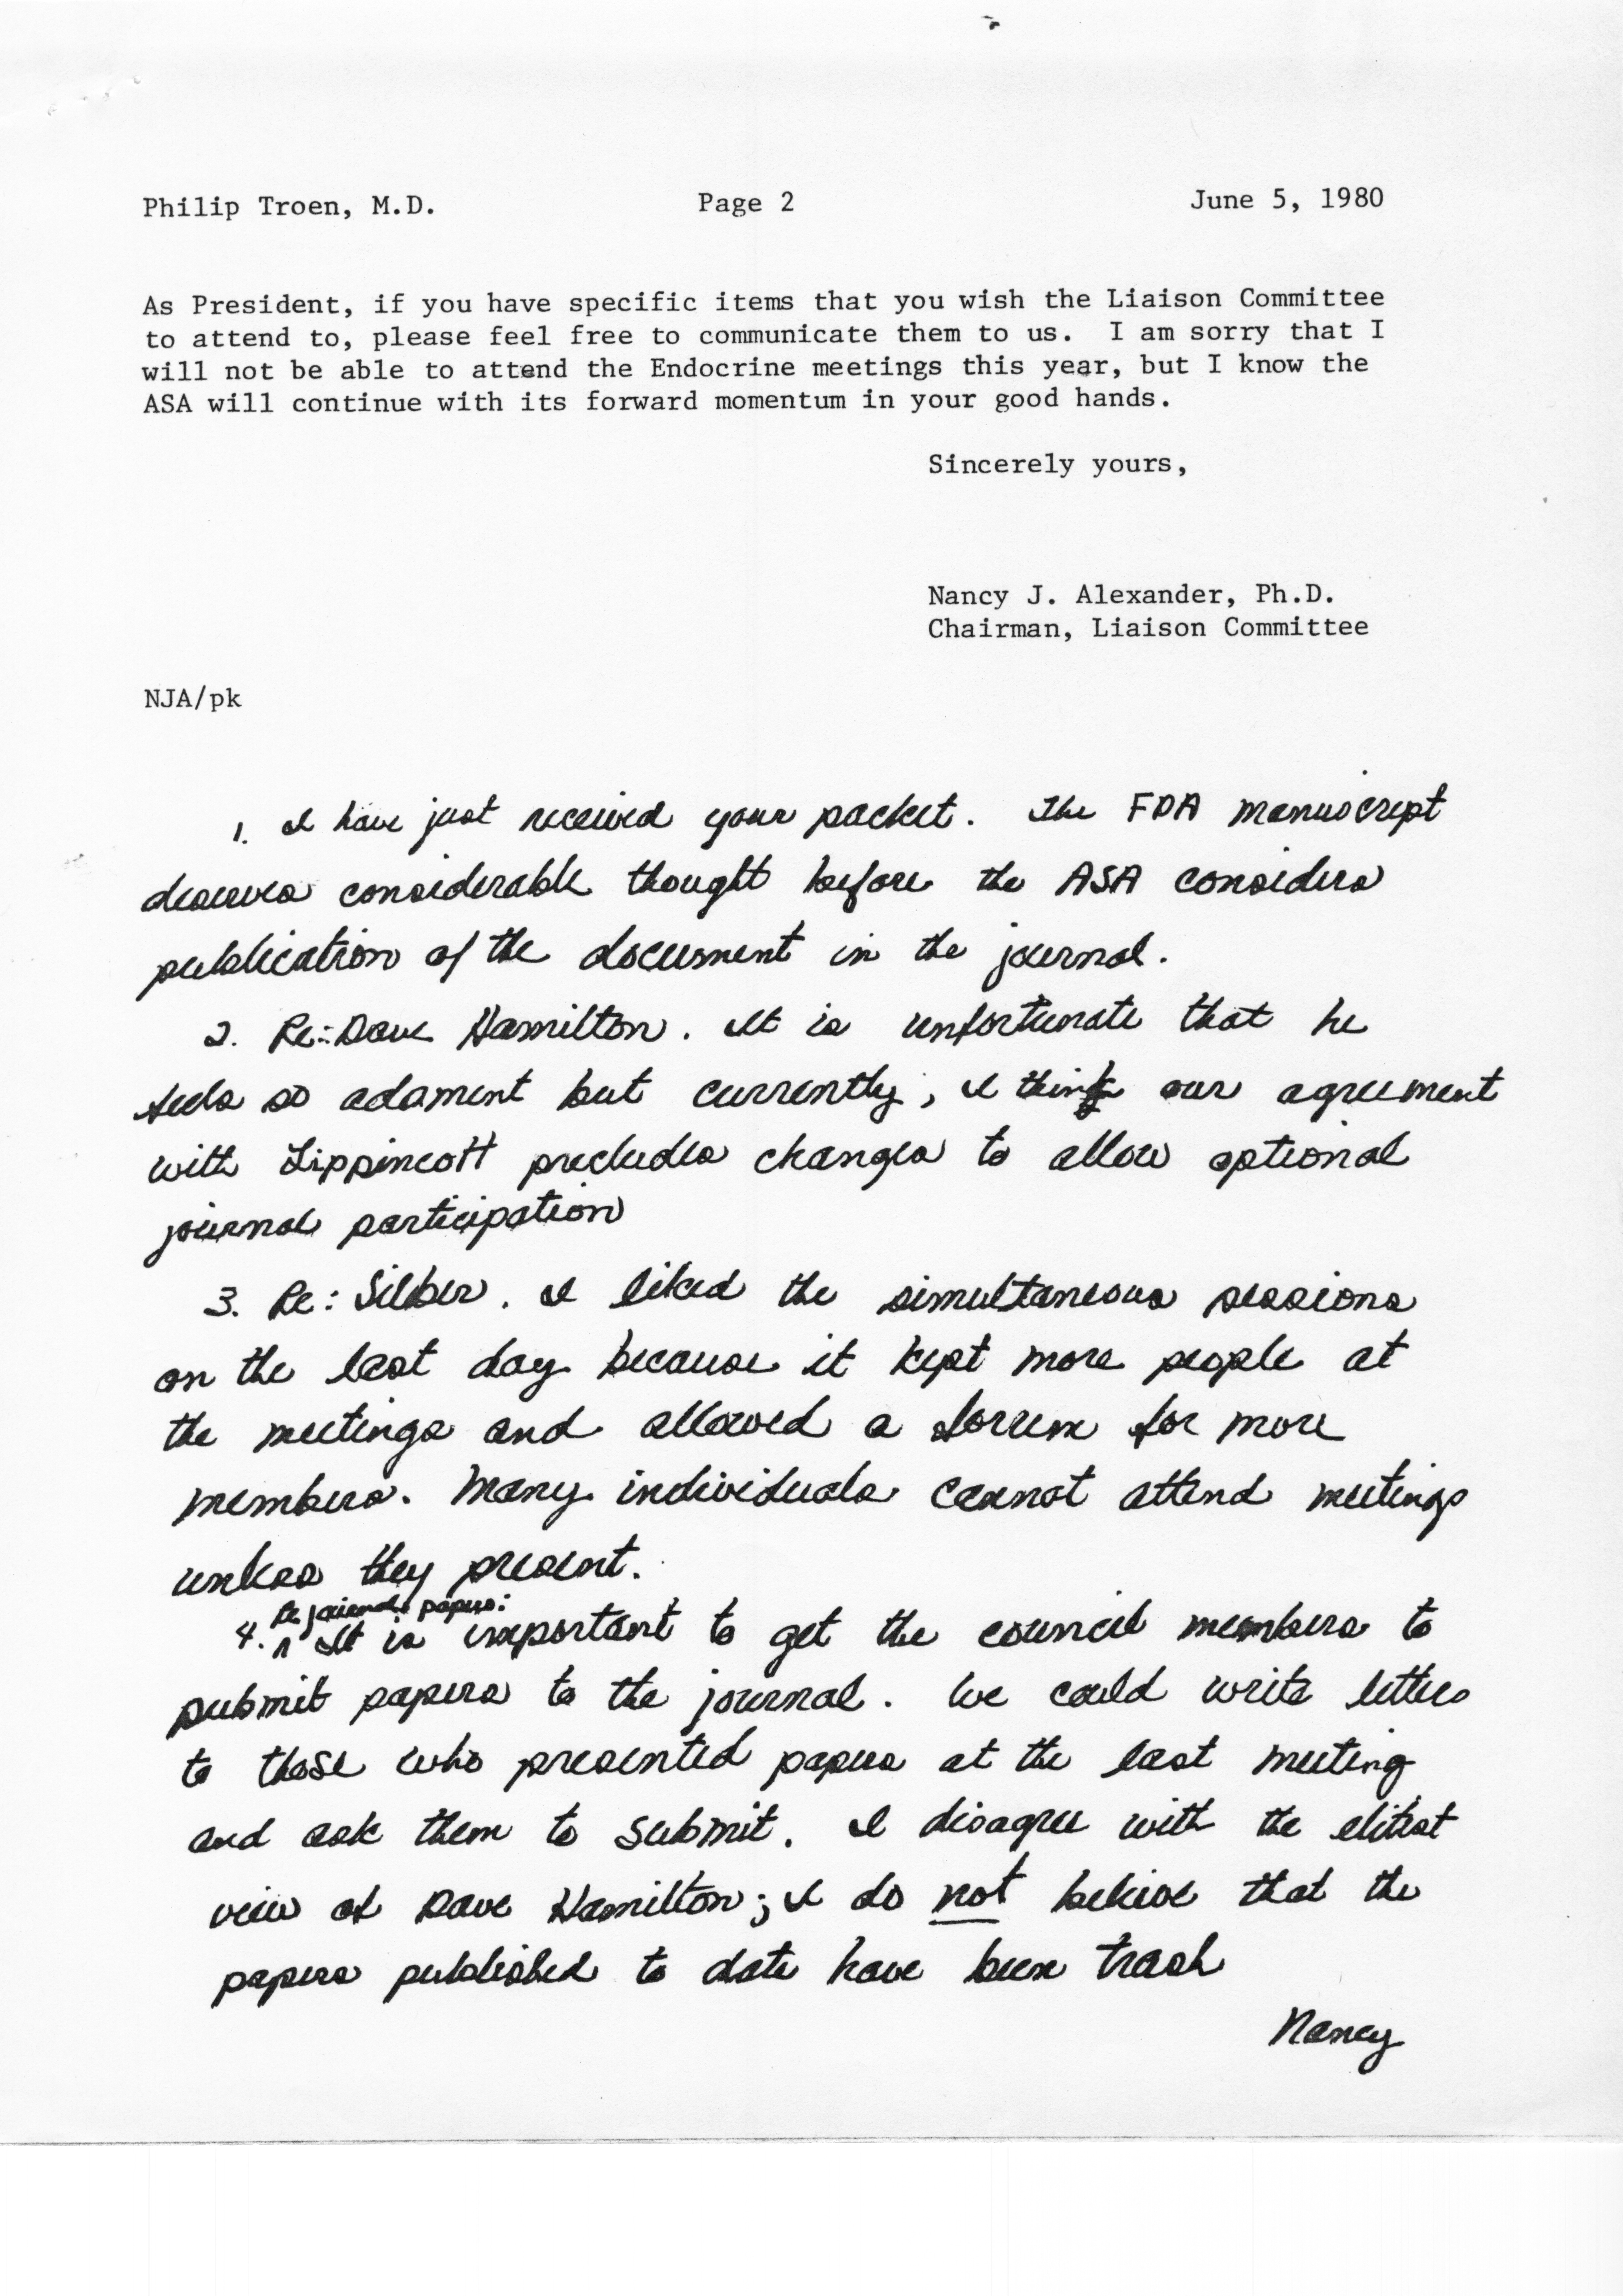 Philip Troen, M.D. Page 2 June 5, 1980
As President, if you have specific items that you wish the Liaison Committee
to attend to, please feel free to communicate them to us. I am sorry that I
will not be able to attend the Endocrine meetings this year, but I know the
ASA will continue with its forward momentum in your good hands.
Sincerely yours,
Nancy J. Alexander, Ph.D.
Chairman, Liaison Committee
NJA/pk
1. I have just received your packet. The FDA manuscript
deserves considerable thought before the ASA considers
publication of the document in the journal.
2. Re: Dave Hamilton. It is unfortunate that he
feels so adament but currently, I think our agreement
with Lippincott precludes changes to allow optional
journal participation
3. Re: Silber. I liked the simultaneous sessions
on the last day because it kept more people at
the meetings and allowed a forum for more
members. Many individuals cannot attend meetings
unless they present.
Re journal papers:
4. ^ It is important to get the council members to
submit papers to the journal. We could write letters
to those who presented papers at the last meeting
and ask them to submit. I disagree with the elitist
view of Dave Hamilton; I do not believe that the
papers published to date have been trash
Nancy